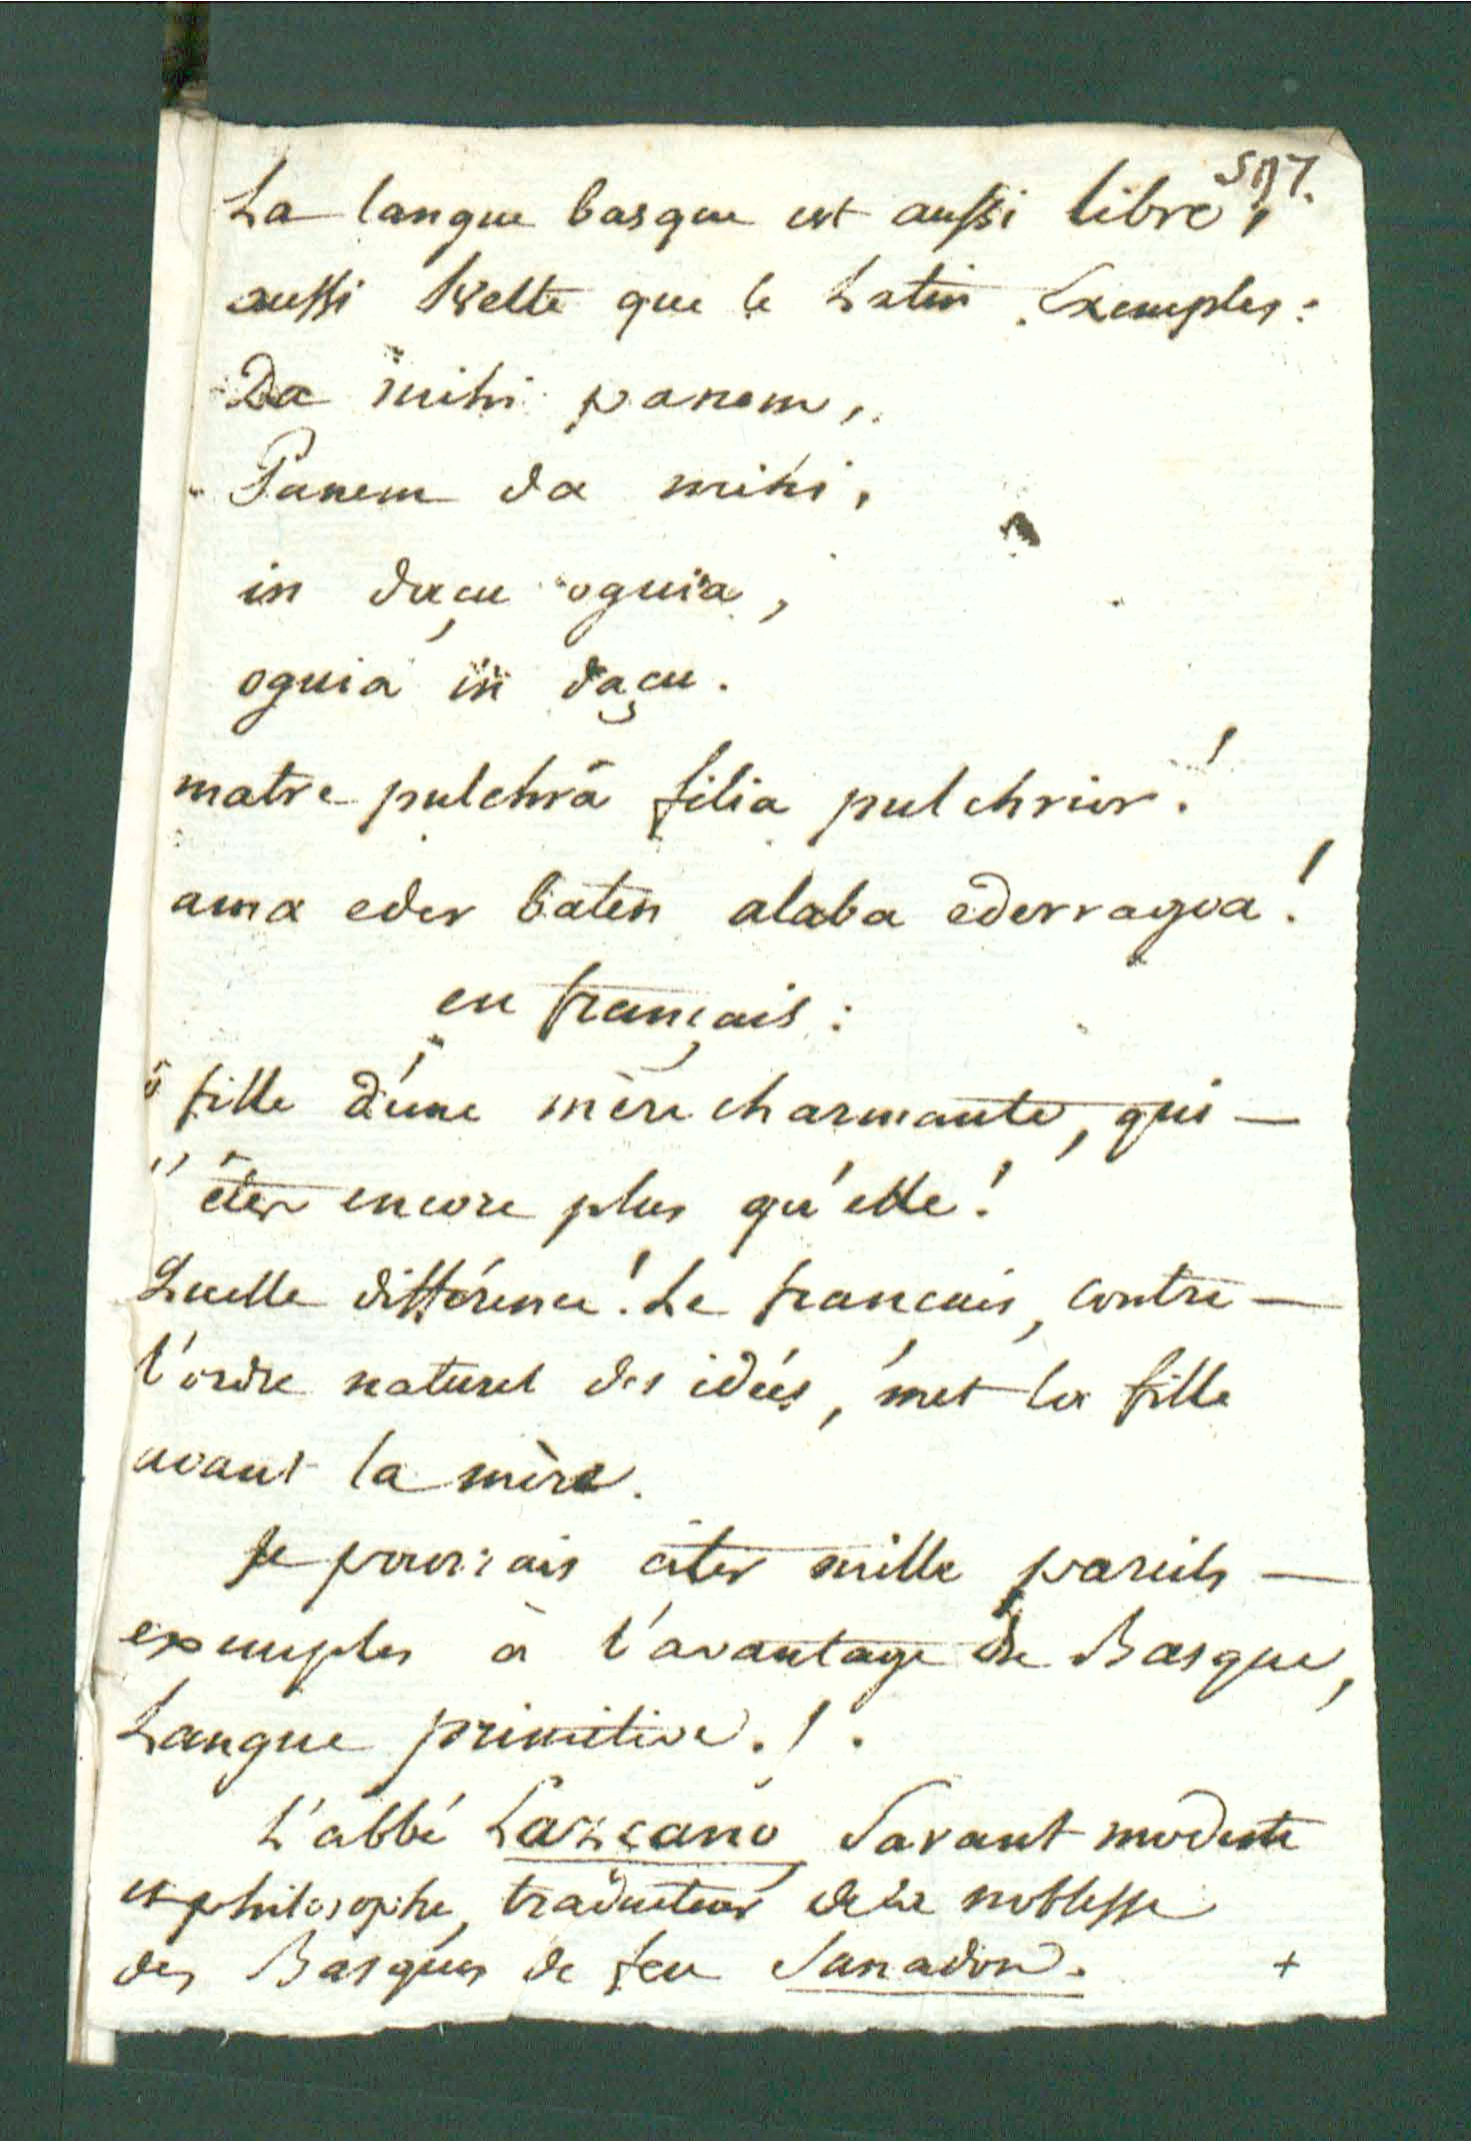 La langue basque est aussi libre,
aussi svelte que le Latin. Exemples:
Da mihi panem,
Panem da mihi,
in daçu oguia,
oguia in daçu.
matre pulchrâ filia pulchrior!
ama eder baten alaba ederragoa!
en français:
ô fille d'une mère charmante, qui —
l'êtes encore plus qu'elle!
Quelle différence! Le francais, contre —
l'ordre naturel des idées, met la fille
avant la mère.
Je pourrais citer mille pareils —
exemples à l'avantage du Basque,
Langue primitive.!.
L'abbé Lazcano Savant modeste
et philosophe, traducteur de la noblesse
des Basques de feu Sanadon. +